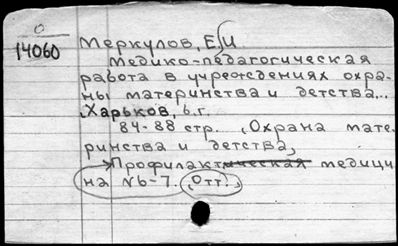 0
14060
Меркулов, Е. И.
Медико-педагогическая
работа в учреждениях охра-
ны материнства и детства...
Харьков, б.г.
84-88 стр. (Охрана мате-
ринства и детства,
Профилактическая медици
на №6-7. (Отт.)